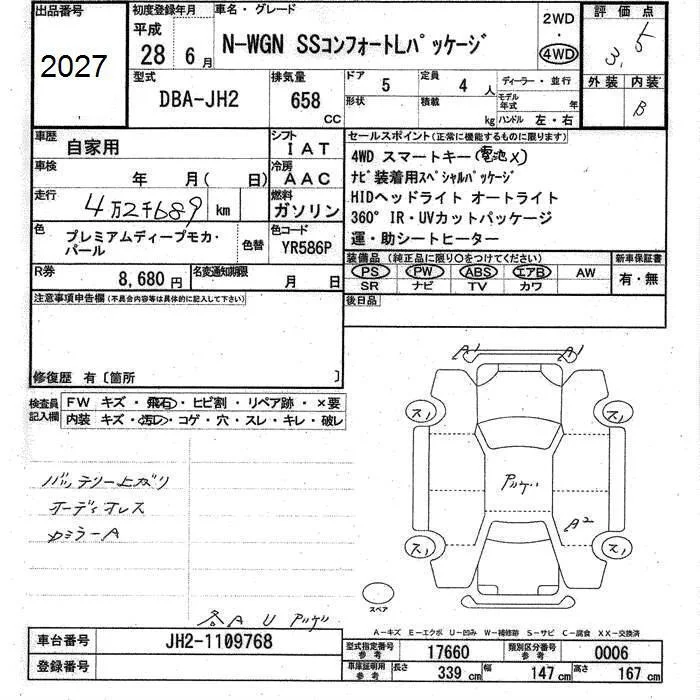 出品番号
2027
初度登録年月
平成
28年 6月
車名・グレード
N-WGN SSコンフォートLパッケージ
2WD
・
4WD
評価点
3.5
外装 内装
B
型式
DBA-JH2
排気量
658
CC
ドア
5
形状
定員
4人
積載
kg
ディーラー・並行
モデル年式 年
ハンドル 左・右
車歴
自家用
シフト
IAT
車検
年 月( 日)
冷房
AAC
走行
4万2千689 km
燃料
ガソリン
色
プレミアムディープモカ・パール
色替
色コード
YR586P
R券
8,680円
名変通知期限
月 日
セールスポイント(正常に機能するものに限ります)
4WD スマートキー(電池X)
ナビ装着用スペシャルパッケージ
HIDヘッドライト オートライト
360° IR・UVカットパッケージ
運・助シートヒーター
装備品(純正品に限り〇をつけてください)
PS PW ABS エアB AW
SR ナビ TV カワ
新車保証書
有・無
後日品
注意事項申告欄(不具合内容等は具体的に記入して下さい)
修復歴 有〔箇所 〕
検査員記入欄
FW キズ・飛石・ヒビ割・リペア跡・×要
内装 キズ・汚レ・コゲ・穴・スレ・キレ・破レ
バッテリー上がり
オーディオレス
ルミラーA
各A U
A1 A1
ス1 ス1
A2
ス1 ス1
スペア
A-キズ E-エクボ U-凹み W-補修跡 S-サビ C-腐食 XX-交換済
車台番号
JH2-1109768
登録番号
型式指定番号 参考
17660
類別区分番号 参考
0006
車庫証明用 参考
長さ 339cm 幅 147cm 高さ 167cm